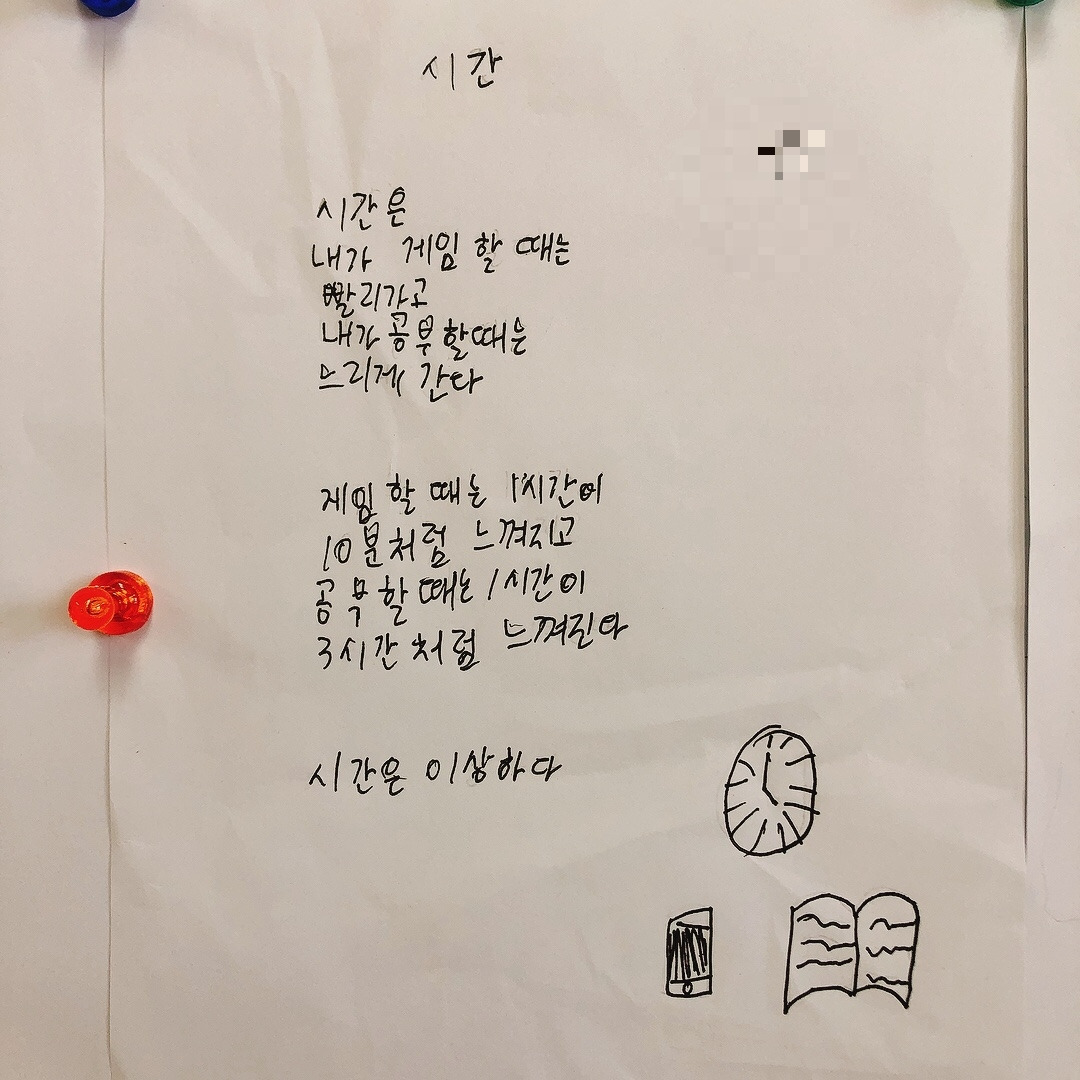 시간
시간은
내가 게임 할 때는
빨리가고
내가 공부할때는
느리게 간다
게임 할 때는 1시간이
10분처럼 느껴지고
공부할 때는 1시간이
3시간처럼 느껴진다
시간은 이상하다